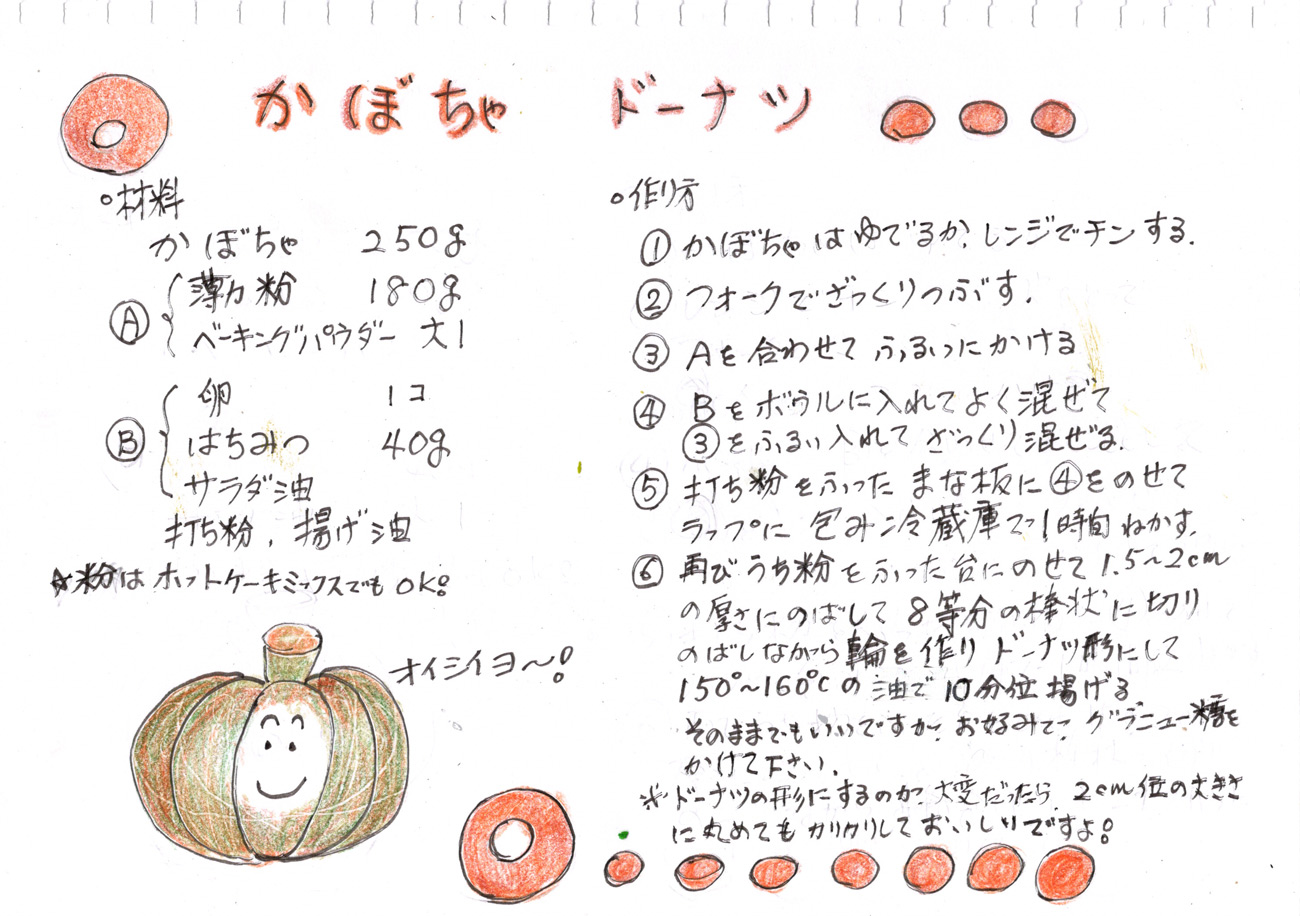 かぼちゃ ドーナツ
○材料
かぼちゃ 250g
Ⓐ 薄力粉 180g
ベーキングパウダー 大1
Ⓑ 卵 1コ
はちみつ 40g
サラダ油
打ち粉、揚げ油
☆粉はホットケーキミックスでもOK!
オイシイヨ〜!
○作り方
① かぼちゃはゆでるか、レンジでチンする。
② フォークでざっくりつぶす。
③ Aを合わせてふるいにかける
④ Bをボウルに入れてよく混ぜて
③をふるい入れてざっくり混ぜる。
⑤ 打ち粉をふったまな板に④をのせて
ラップに包み冷蔵庫で1時間ねかす。
⑥ 再びうち粉をふった台にのせて1.5〜2cm
の厚さにのばして8等分の棒状に切り
のばしながら輪を作りドーナツ形にして
150°〜160℃の油で10分位揚げる
そのままでもいいですが、お好みで、グラニュー糖を
かけて下さい。
※ドーナツの形にするのが、大変だったら、2cm位の大きさ
に丸めてもカリカリしておいしいですよ!